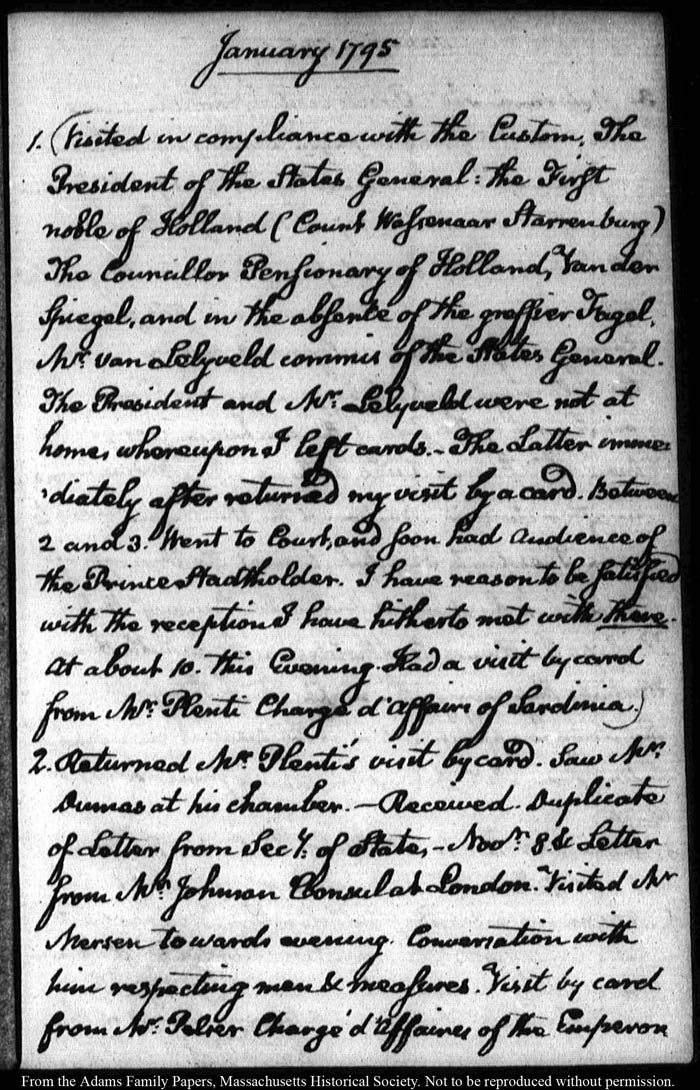 January 1795
1. (Visited in compliance with the Custom, The
President of the States General: the First
noble of Holland (Count Wassenaar Starrenburg)
The Councillor Pensionary of Holland, Van der
Spiegel, and in the absence of the greffier Fagel,
Mr. van Lelyveld commis of the States General.
The President and Mr. Lelyveld were not at
home, whereupon I left cards. - The Latter imme=
'diately after returned my visit by a card. Between
2 and 3. Went to Court, and soon had audience of
the Prince Stadtholder. I have reason to be satisfied
with the reception I have hitherto met with there.
At about 10. this Evening. Had a visit by card
from Mr. Plenti Chargé d'affaires of Sardinia.)
2. Returned Mr. Plenti's visit by card. Saw Mr.
Dumas at his chamber. — Received. Duplicate
of Letter from Secy. of State, - Novr. 8 & Letter
from Mr. Johnson Consul at London. Visited Mr
Mersen towards evening. Conversation with
him respecting men & measures. Visit by card
from Mr. Pelser Chargé d'Affaires of the Emperor
From the Adams Family Papers, Massachusetts Historical Society. Not to be reproduced without permission.